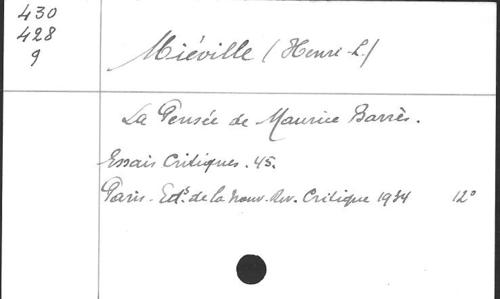 430
428
9
Miéville (Henri-L.)
La Pensée de Maurice Barrès.
Essais Critiques. 45.
Paris. Edns. de la nouv. Rev. Critique 1934 12°